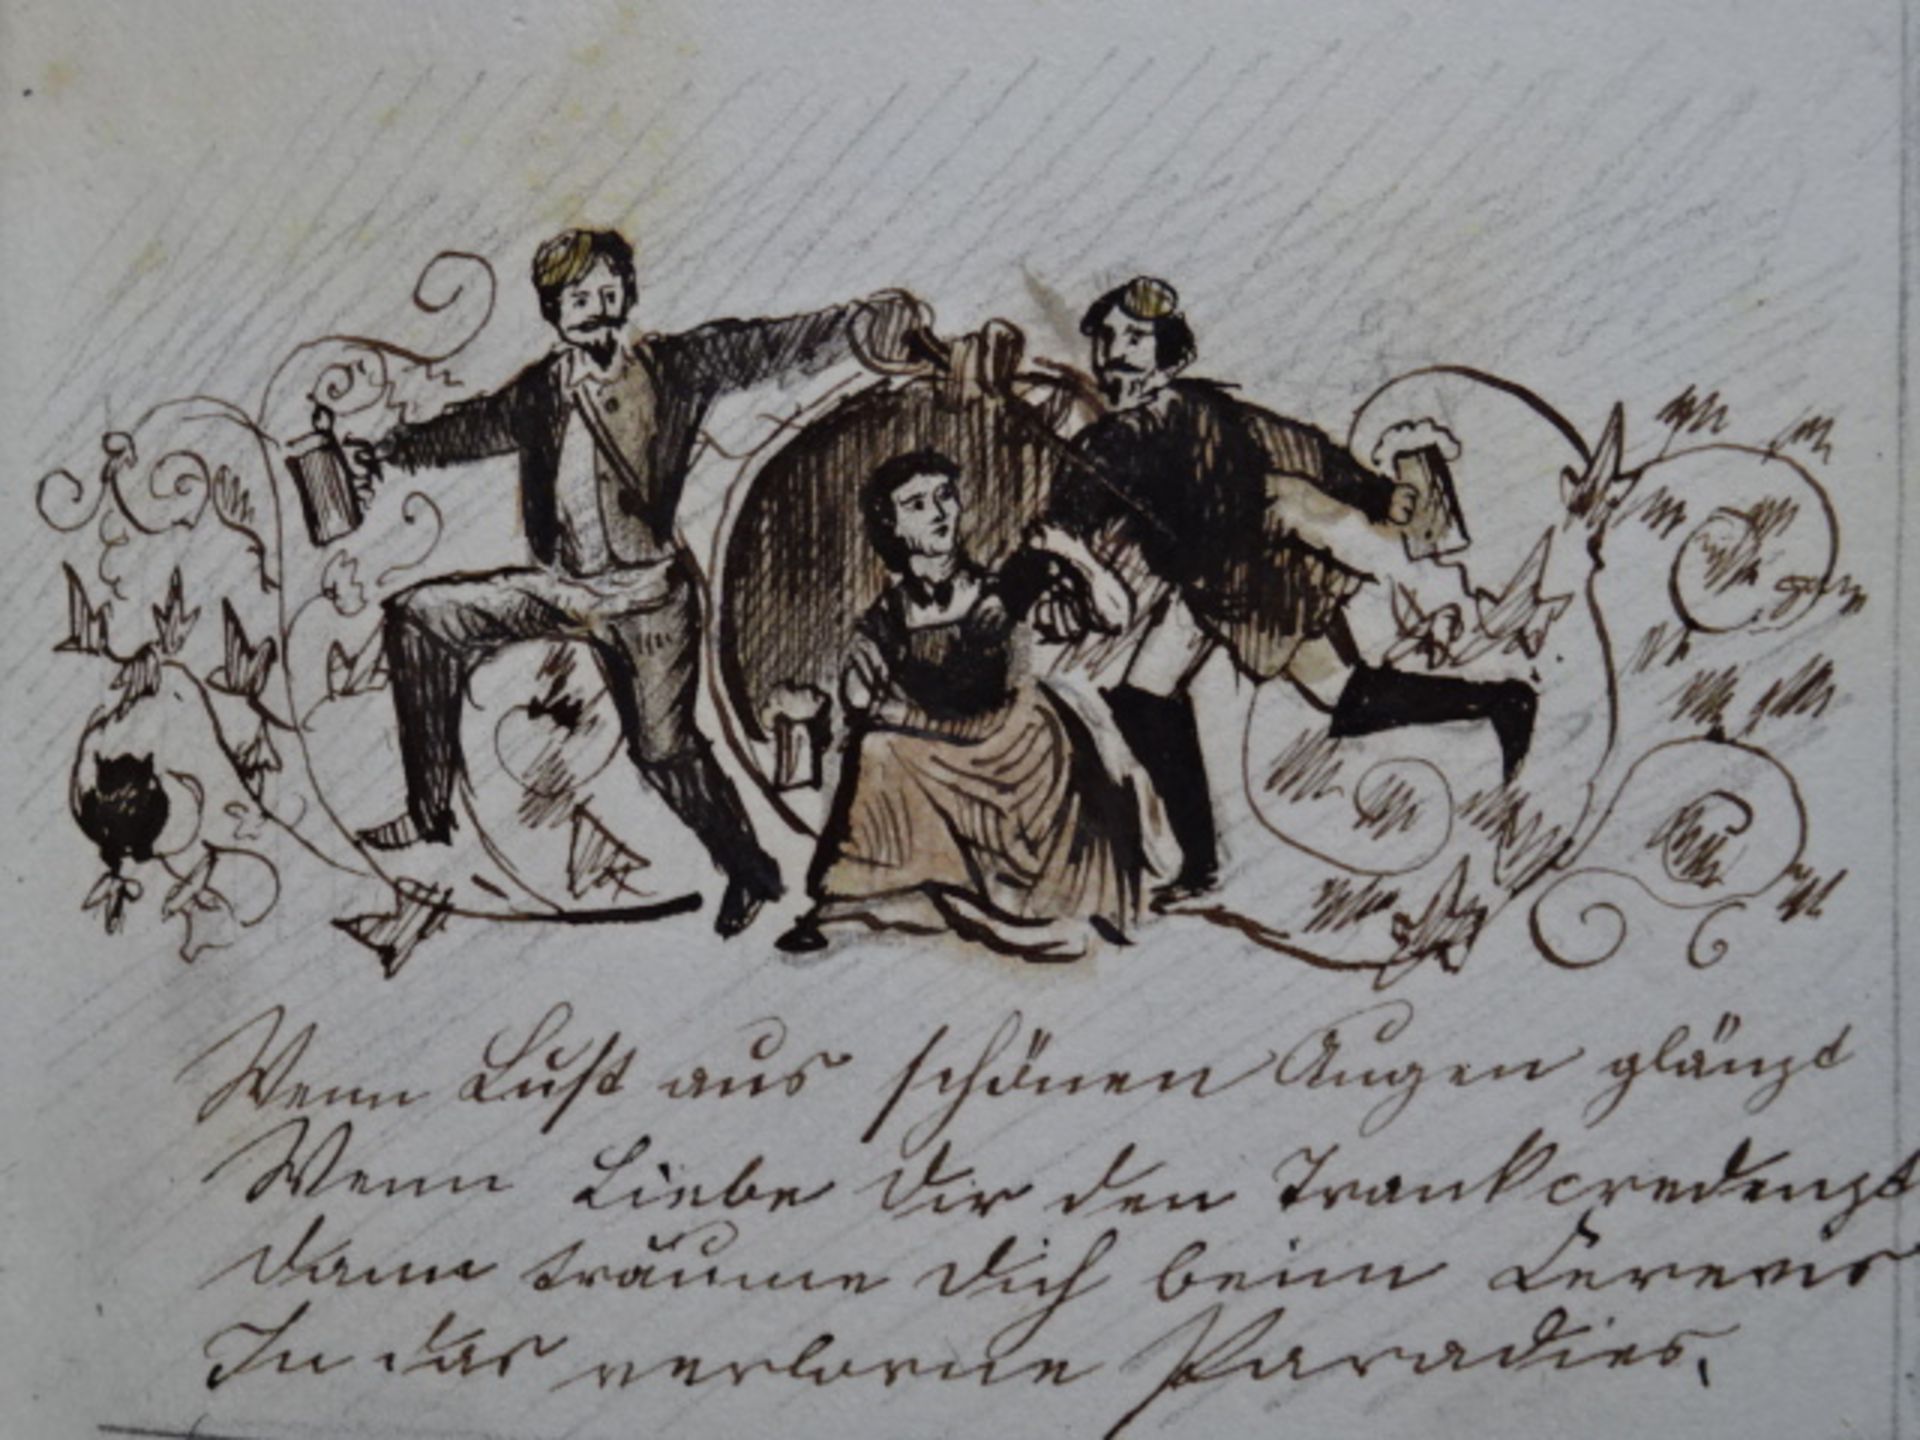 Wenn Lust aus schönen Augen glänzt
Wenn Liebe dir den Trank credenzt
dann träume dich beim Cerevis
In das verlorne Paradies.